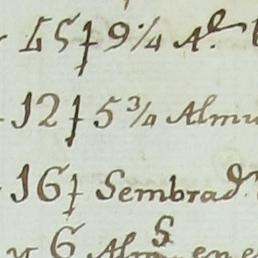 15ƚ 9¼ A.ᵉ
12ƚ 5¾ Almu
16ƚ Sembrad.ˢ
y 6 Alm.ˢ en e